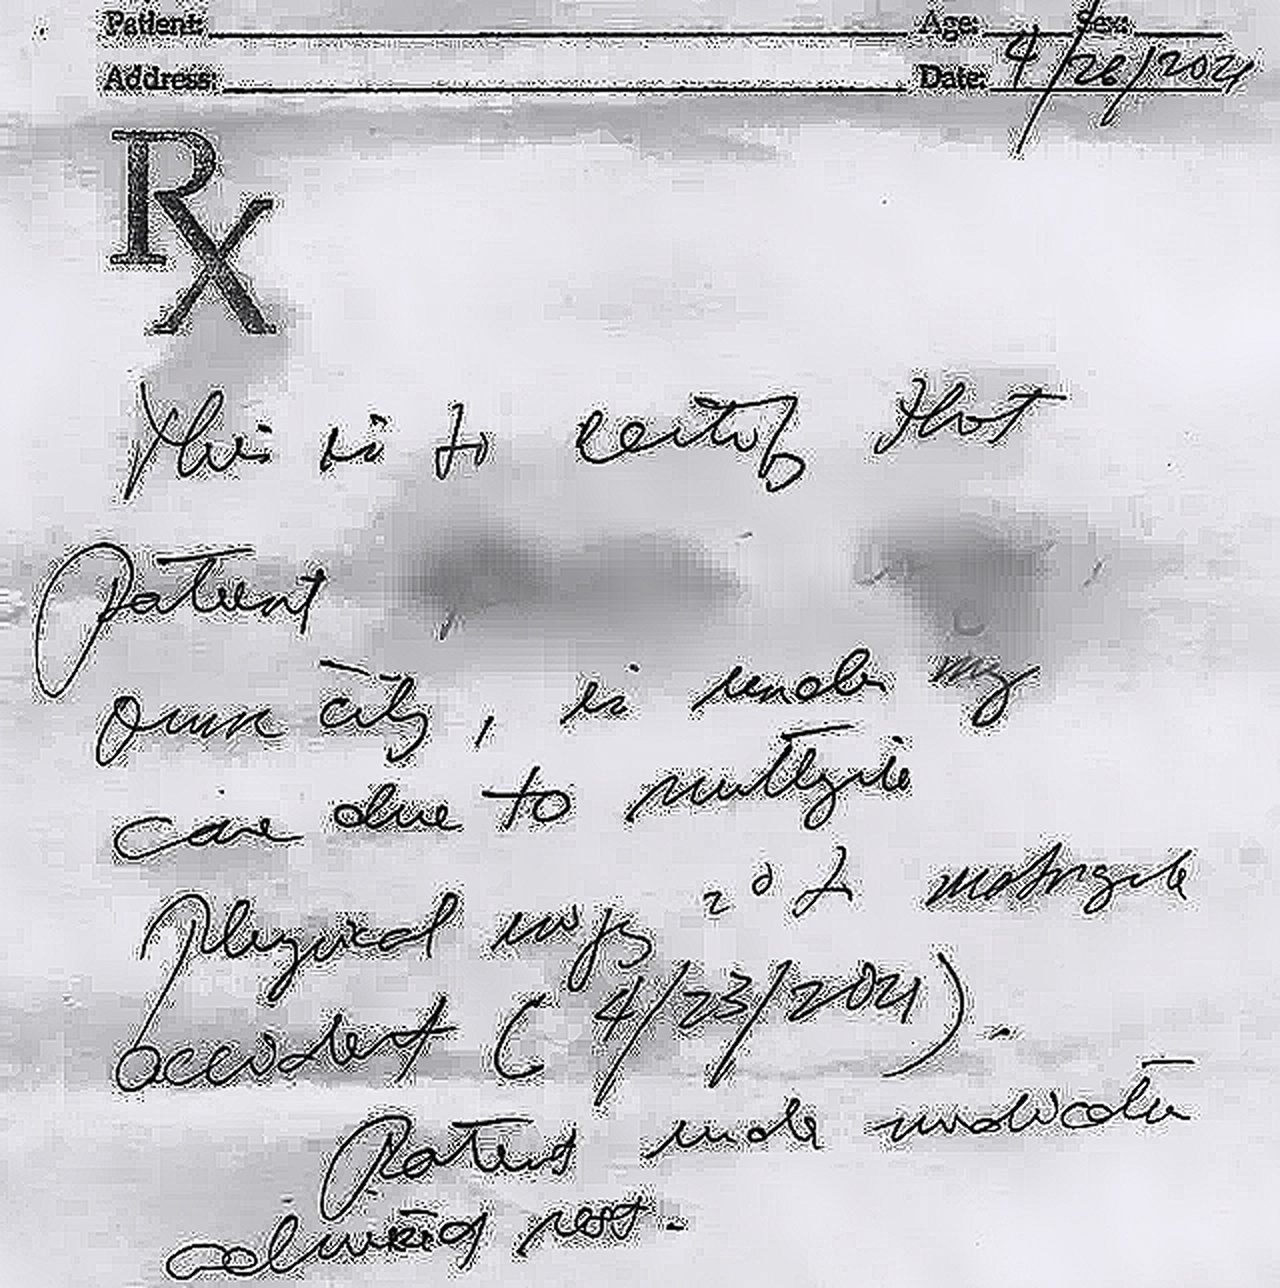 Patient: Age: Sex:
Address: Date: 4/26/2021
Rx
This is to certify that
Patient
Ormoc city, is under my
care due to multiple
physical injury 2° to motorcycle
accident (4/23/2021).
Patient under medication
advised rest.